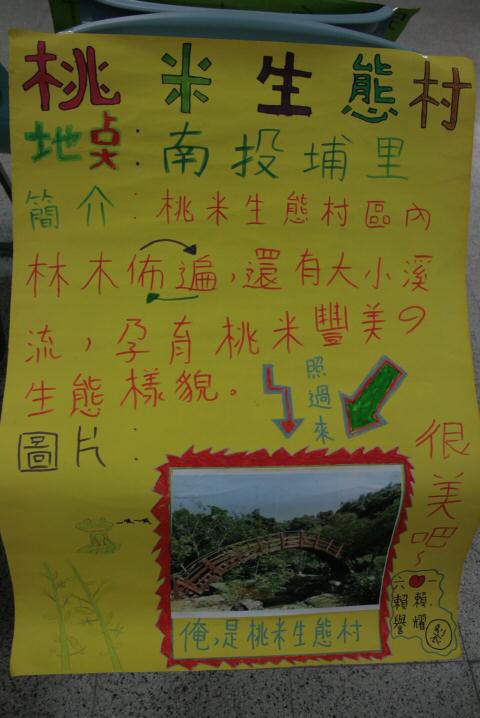 桃米生態村
地點：南投埔里
簡介：桃米生態村區內
林木佈遍，還有大小溪
流，孕育桃米豐美の
生態樣貌。
照過來
圖片：
很美吧~
俺,是桃米生態村
六 一
賴譽 賴熠